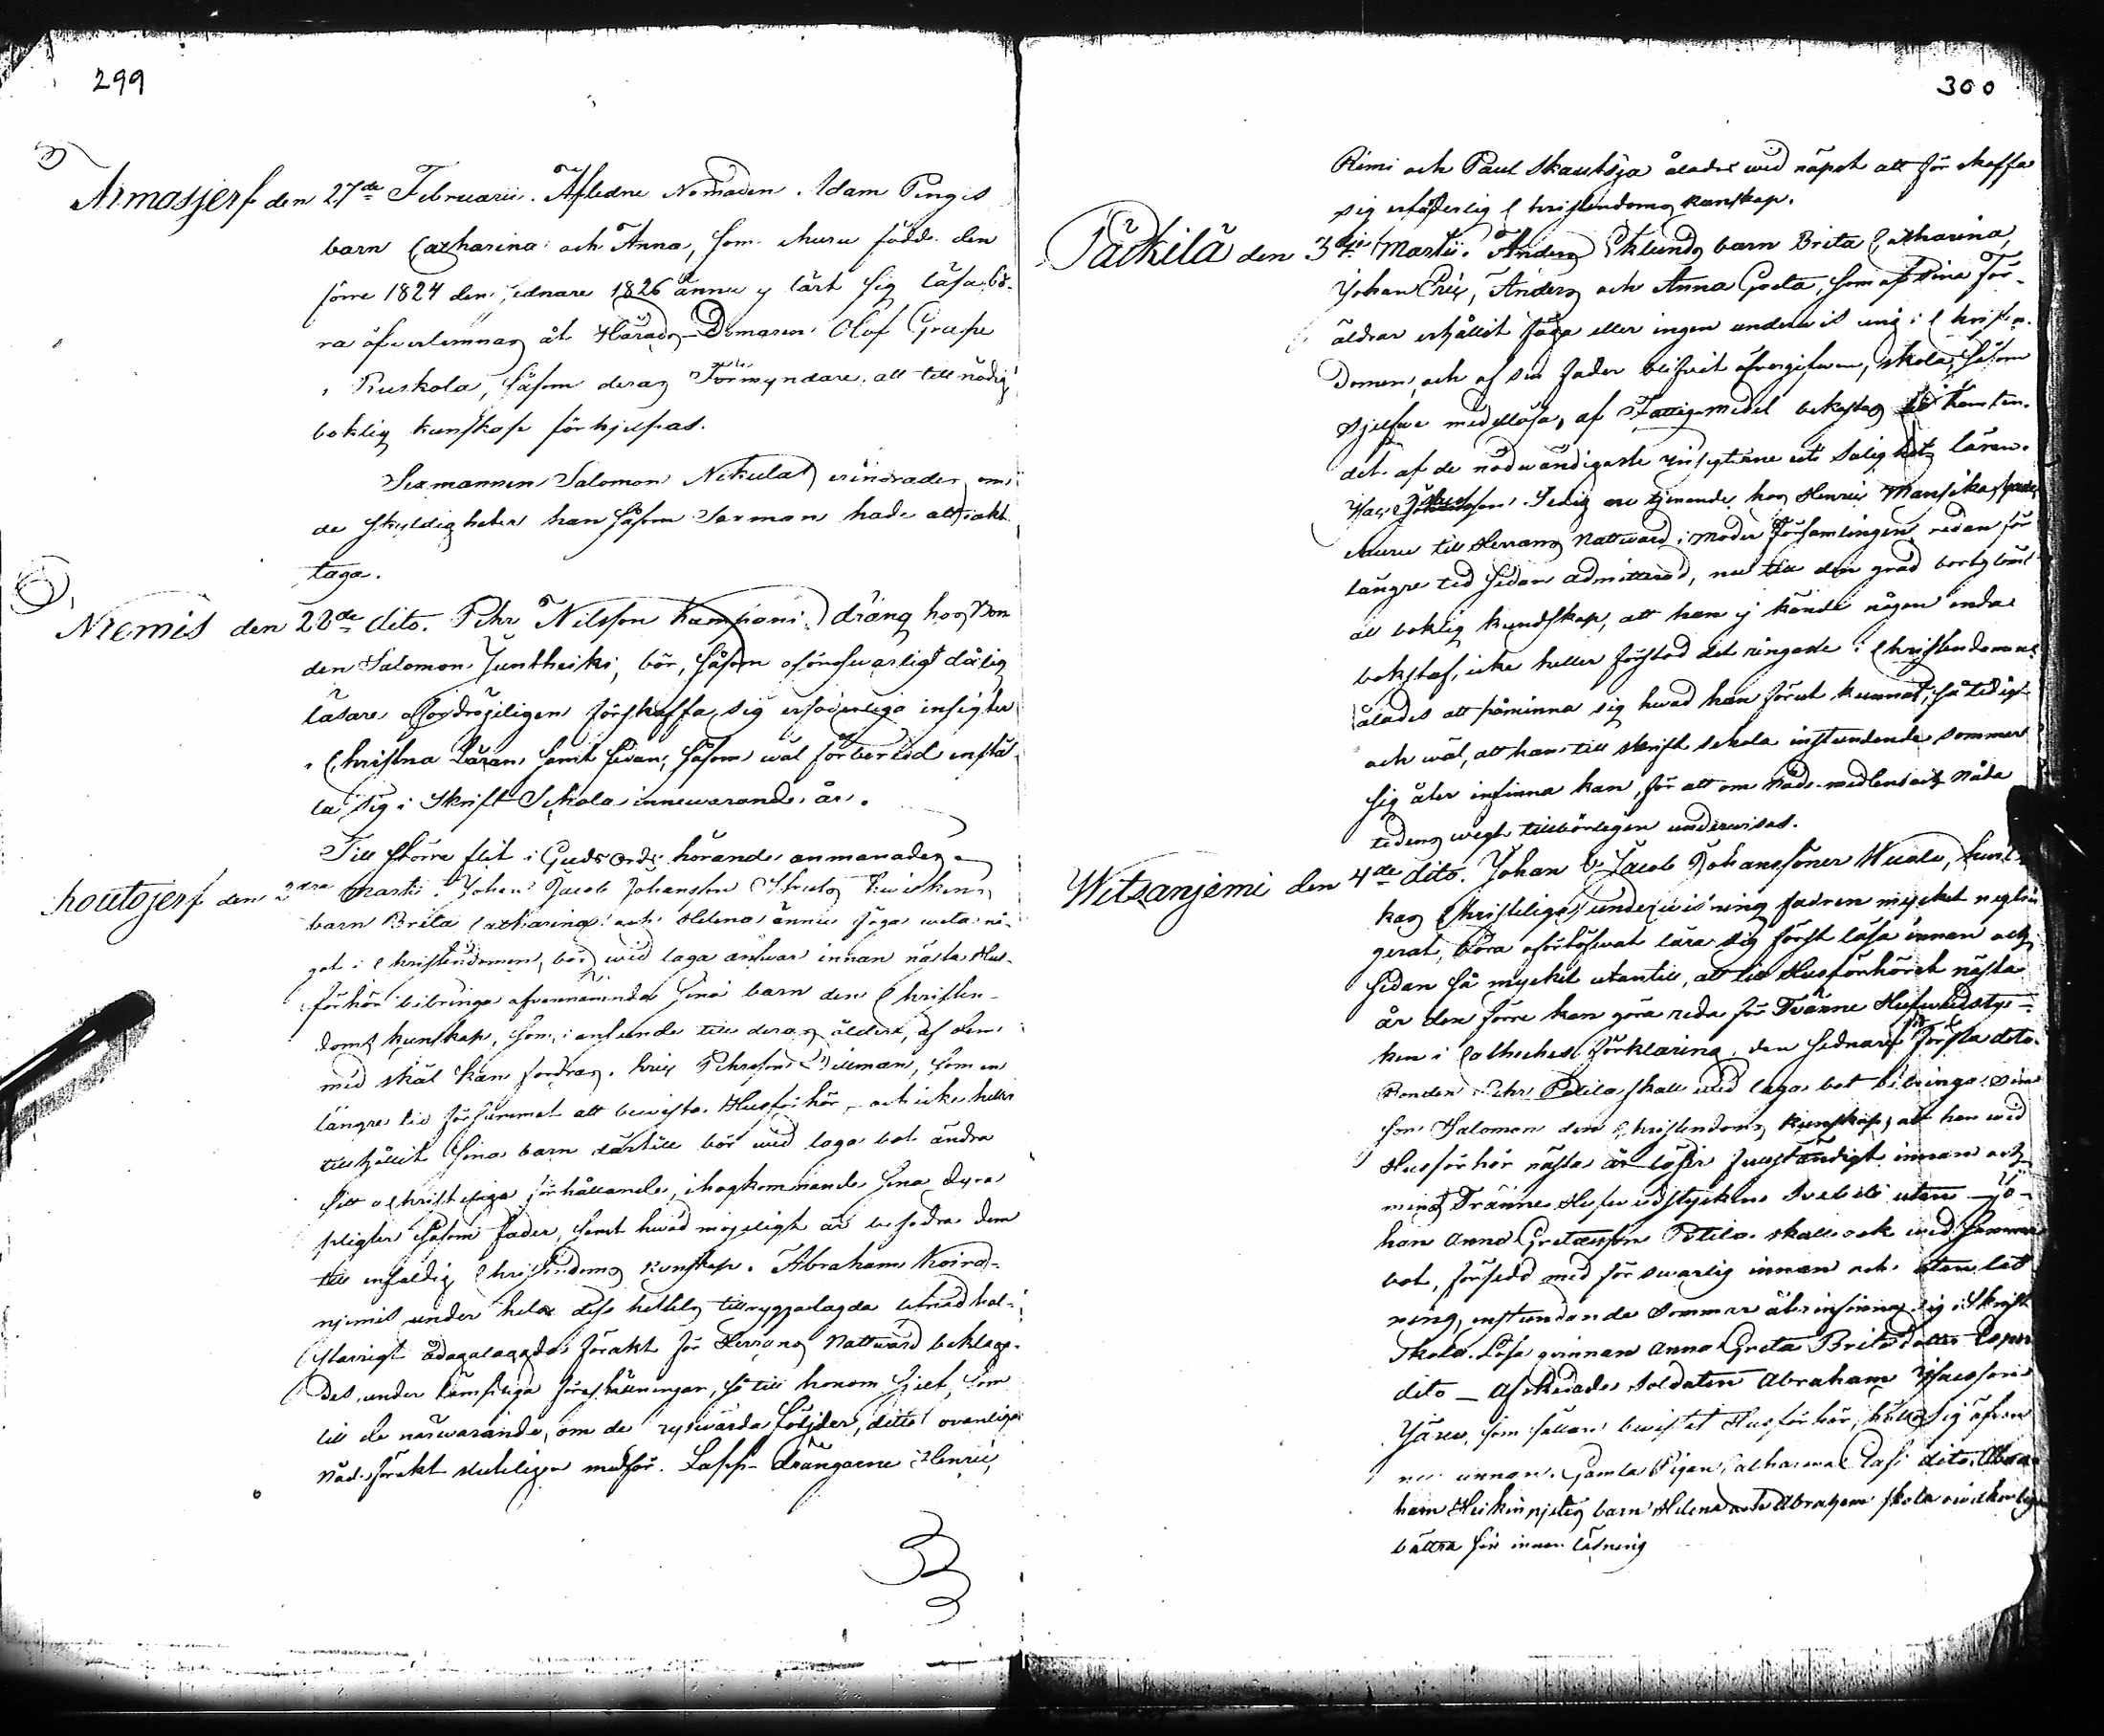 299
Armasjerf den 27de Februarii. Aflidne Nomaden Adam Pingis
barn Catharina och Anna, som äro födde den
förre 1824 den sednare 1826 ännu ej lärt sig läsa, bö-
ra öfverlemnas åt Härads-Domaren Olof Grape
i Ruskola, såsom deras Förmyndare, att till nödig
boklig kunskap förhjelpas.
Sexmannen Salomon Nikulas erindrades om
de skyldigheter han såsom Sexman hade att iakt
taga.
Niemis den 28de dito. Pehr Nilsson Kamponi dräng hos Bon
den Salomon Juntheiki, bör, såsom oförsvarligt dålig
läsare ofördröjeligen förskaffa sig erforderliga insigter
i Christna Läran samt sedan, såsom wäl förberedd instäl-
la sig i Skrift Schola innewarande år.
Till större flit i Guds Ords hörande anmanades
Koutojerf den 2dra Martii. Johan Jacob Johansson
barn Brita Catharina och Helena ännu föga weta nå-
got i Christendomen, bör wid laga answar innan nästa Hus-
förhör bibringa ofvannämnda sina barn den Christen-
doms kunskap, som, i anseende till deras ålder, af dem
med skäl kan fordras. Eric Pehrsson som en
längre tid försummat att bewista Husförhör, och icke heller
tillhållit sina barn därtill bör wid laga bot ändra
sitt ochristeliga förhållande, ihogkommande sina dyra
pligter såsom fader, samt hwad möjeligt är befodra dem
till enfaldig Christendoms kunskap. Abraham Koira-
njemis under hela dess hittills tillryggalagda lefnad hal-
starrigt ådagalagda förakt för Herrans Nattward beklaga-
des under lämpliga föreställningar, så till honom sjelf, som
till de närwarande, om de ryswärda följder, detta owanliga
Nåd. förakt medför. Lapp-drängarne Henric
300
Rimi och Paul Skautsja ålades wid näpst att förskaffa
sig erforderlig Christendoms kunskap.
Päckilä den 3dje Martii. Anders Eklunds barn Brita Catharina,
Johan Eric, Anders och Anna Greta, som af sina För-
äldrar erhållit föga eller ingen underwisning i Christen-
domen, och af sin fader blifvit öfvergifven, skola, såsom
sjelfwa medellösa, af Fattigmedel bekostas till
det af de nödwändigaste insigterne uti Salighets läran.
tjenande hos Henric
till Herrans Nattward i Moder Församlingen redan för
längre tid sedan admitterad, nu till den grad bortglömt
all boklig kundskap, att han ej kände någon enda
bokstaf, icke heller förstod det ringaste i Christendomen
ålades att påminna sig hwad han förut kunnat, så tidigt
och wäl, att han till skrift schola instundande sommar
sig åter infinna kan, för att om Nåds-medlen och Nåda
tidens wigt tillbörligen underwisas.
Witsanjemi den 4de dito. Johan & Jacob Johanssöner
Christeliga underwisning fadren mycket negli-
gerat, böra oförtöfvat lära sig först läsa innan och
sedan så mycket utantill, att till Husförhöret nästa
år den förre kan göra reda för Tvänne Hufwudstyc-
ken i Catheches förklaring den sednare för Första dito.
Bonden Pehr Potila skall wid laga bot bibringa sin
son Salomon den Christendoms kunskap, att han wid
Husförhör nästa år läser fullständigt innan och
minst Tvänne Hufwudstycken Svebilii utan - Jo-
han Anna Gretasson Potila skall ock wid samma
bot, försedd med försvarlig innan och utan läs-
ning, instundande Sommar åter infinna sig i Skrift
Skola. Lösa qvinnan Anna Greta Britadotter
dito - Afskedade Soldaten Abraham Isacsson
som sällan bewistat Husförhör, håller sig äfven
innan. Gamla Pigan Catharina dito. Abra-
ham barn Helena och Abraham skola
bättra sin innan läsning